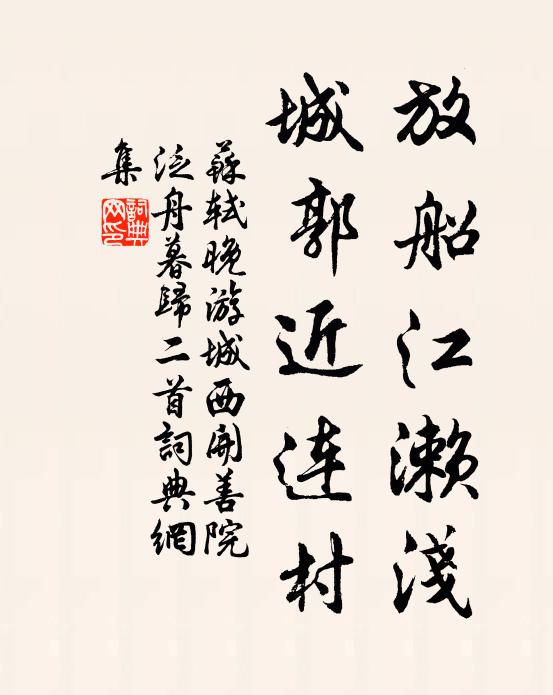 放船江濑淺
城郭近連村
蘇軾晚游城西開善院
泛舟暮歸二首詞典網
集
詞典
网印